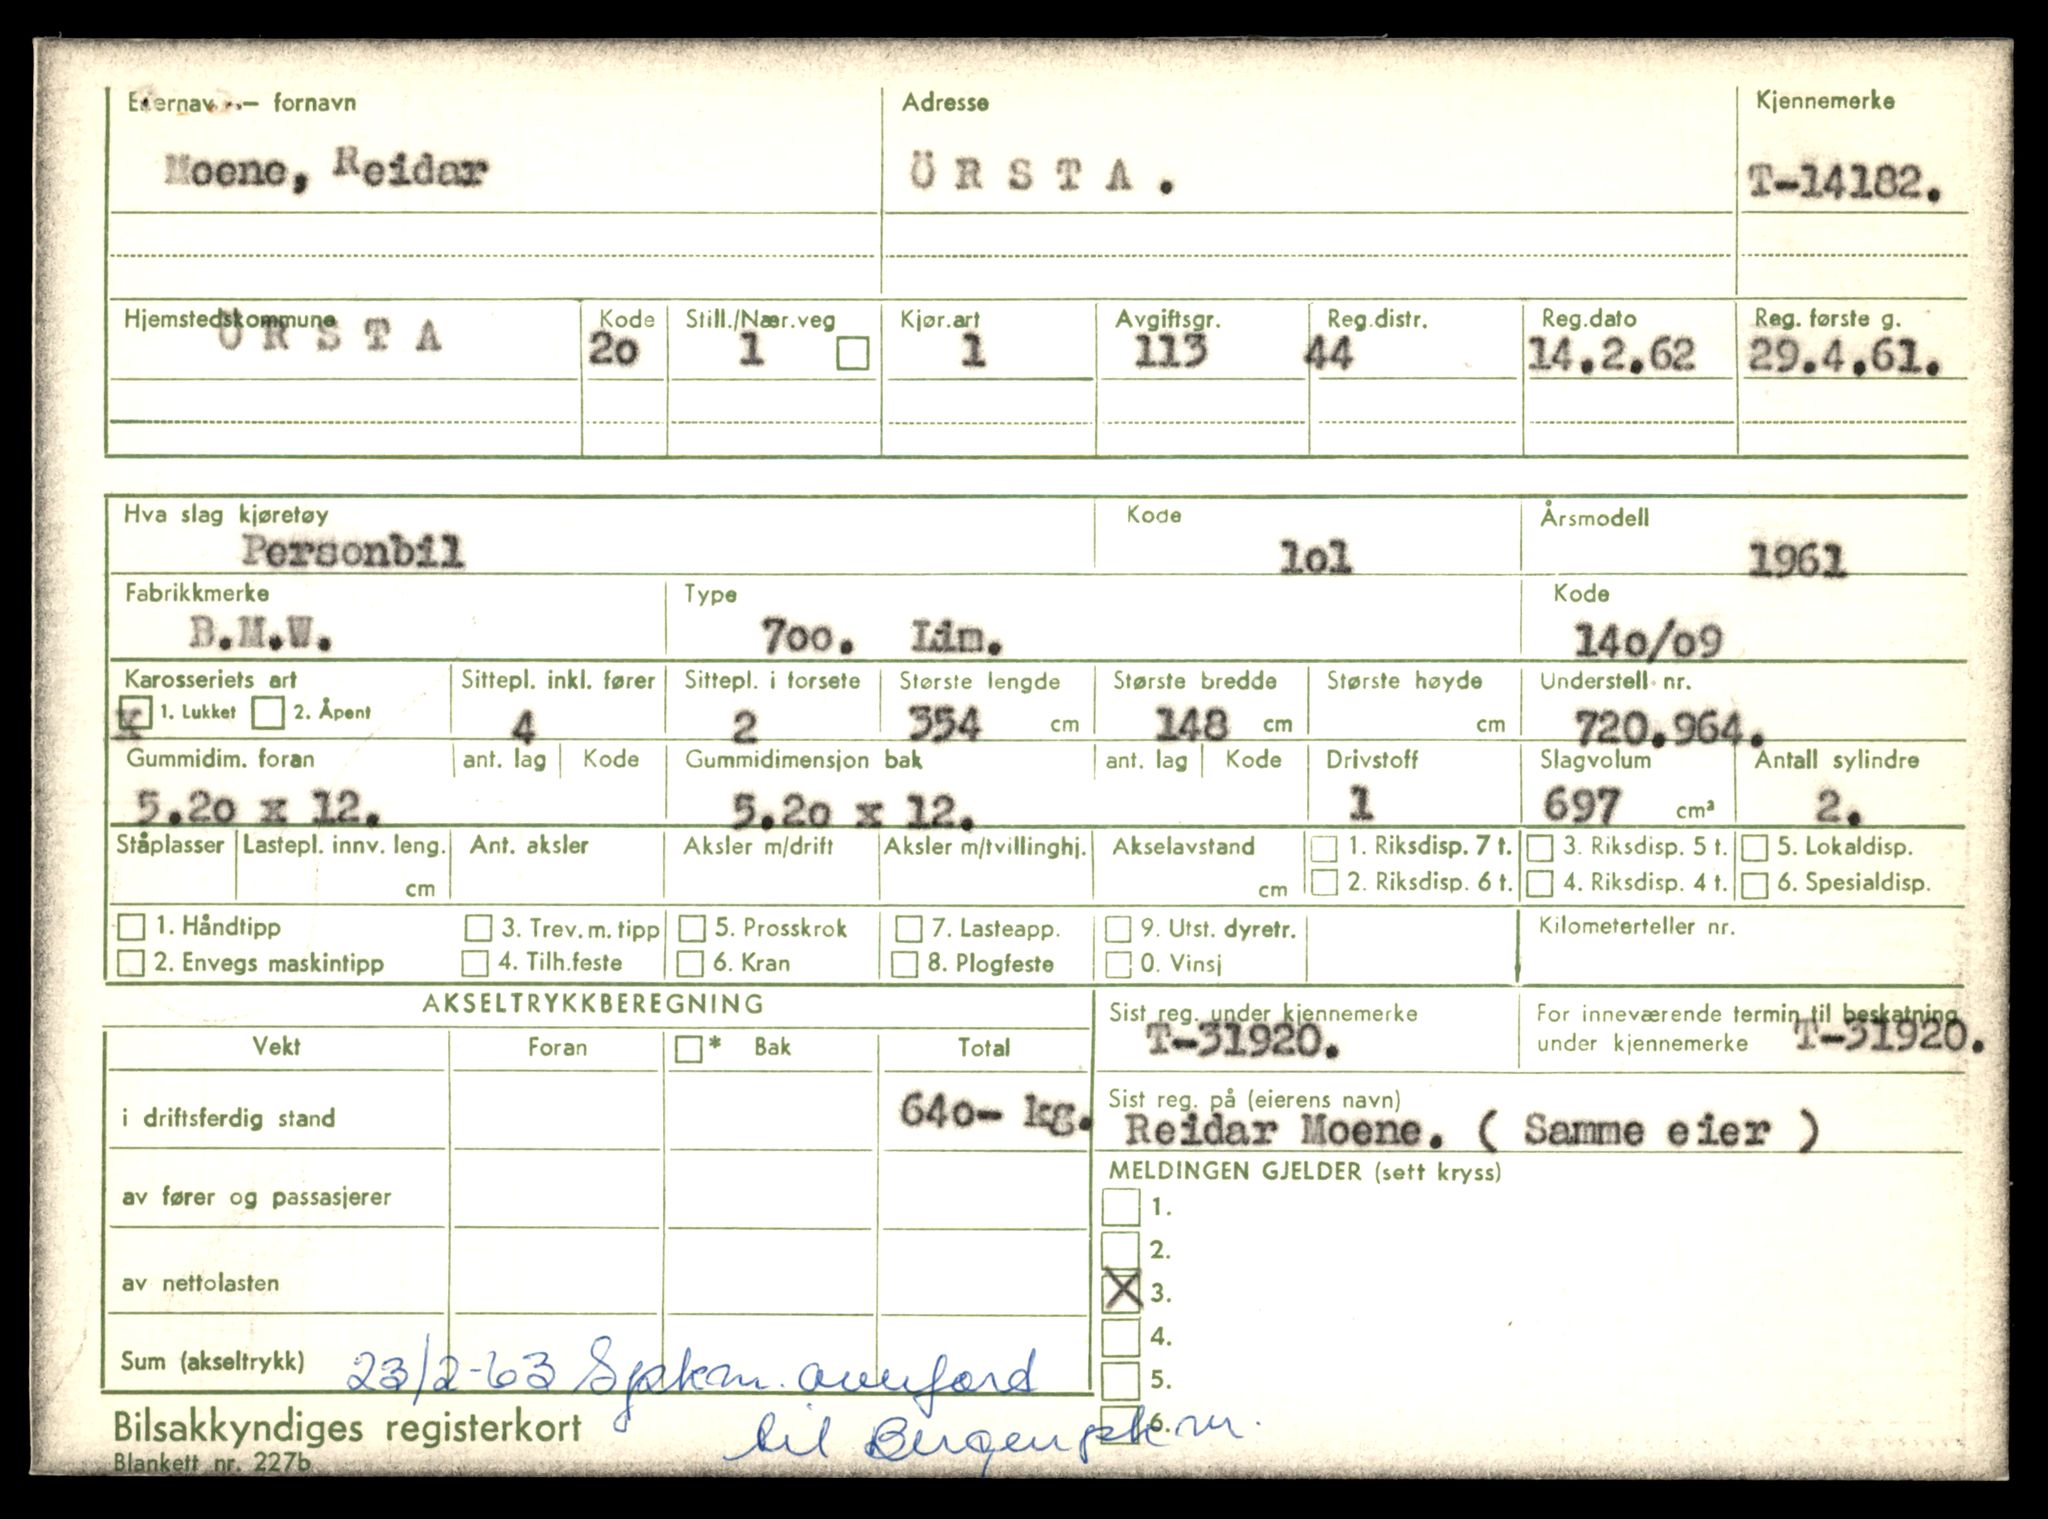 Eiernavn — fornavn Adresse Kjennemerke
Moene, Reidar ÖRSTA. T-14182.
Hjemstedskommune Kode Still./Nær.veg Kjør.art Avgiftsgr. Reg.distr. Reg.dato Reg. første g.
ÖRSTA 2o 1 1 113 44 14.2.62 29.4.61.
Hva slag kjøretøy Kode Årsmodell
Personbil lol 1961
Fabrikkmerke Type Kode
B.M.W. 7oo. Lim. 14o/o9
Karosseriets art Sittepl. inkl. fører Sittepl. i forsete Største lengde Største bredde Største høyde Understell nr.
x 1. Lukket 2. Åpent 4 2 354 cm 148 cm cm 720.964.
Gummidim. foran ant. lag Kode Gummidimensjon bak ant. lag Kode Drivstoff Slagvolum Antall sylindre
5.2o x 12. 5.2o x 12. 1 697 cm³ 2.
Ståplasser Lastepl. innv. leng. Ant. aksler Aksler m/drift Aksler m/tvillinghj. Akselavstand 1. Riksdisp. 7 t. 3. Riksdisp. 5 t. 5. Lokaldisp.
cm cm 2. Riksdisp. 6 t. 4. Riksdisp. 4 t. 6. Spesialdisp.
1. Håndtipp 3. Trev. m. tipp 5. Prosskrok 7. Lasteapp. 9. Utst. dyretr. Kilometerteller nr.
2. Envegs maskintipp 4. Tilh.feste 6. Kran 8. Plogfeste 0. Vinsj
AKSELTRYKKBEREGNING Sist reg. under kjennemerke For inneværende termin til beskatning
T-31920. under kjennemerke T-31920.
Vekt Foran * Bak Total
i driftsferdig stand 64o- kg. Sist reg. på (eierens navn)
Reidar Moene. ( Samme eier )
MELDINGEN GJELDER (sett kryss)
av fører og passasjerer 1.
2.
av nettolasten X 3.
4.
Sum (akseltrykk) 23/2-63 5.
til 6.
Bilsakkyndiges registerkort
Blankett nr. 227b